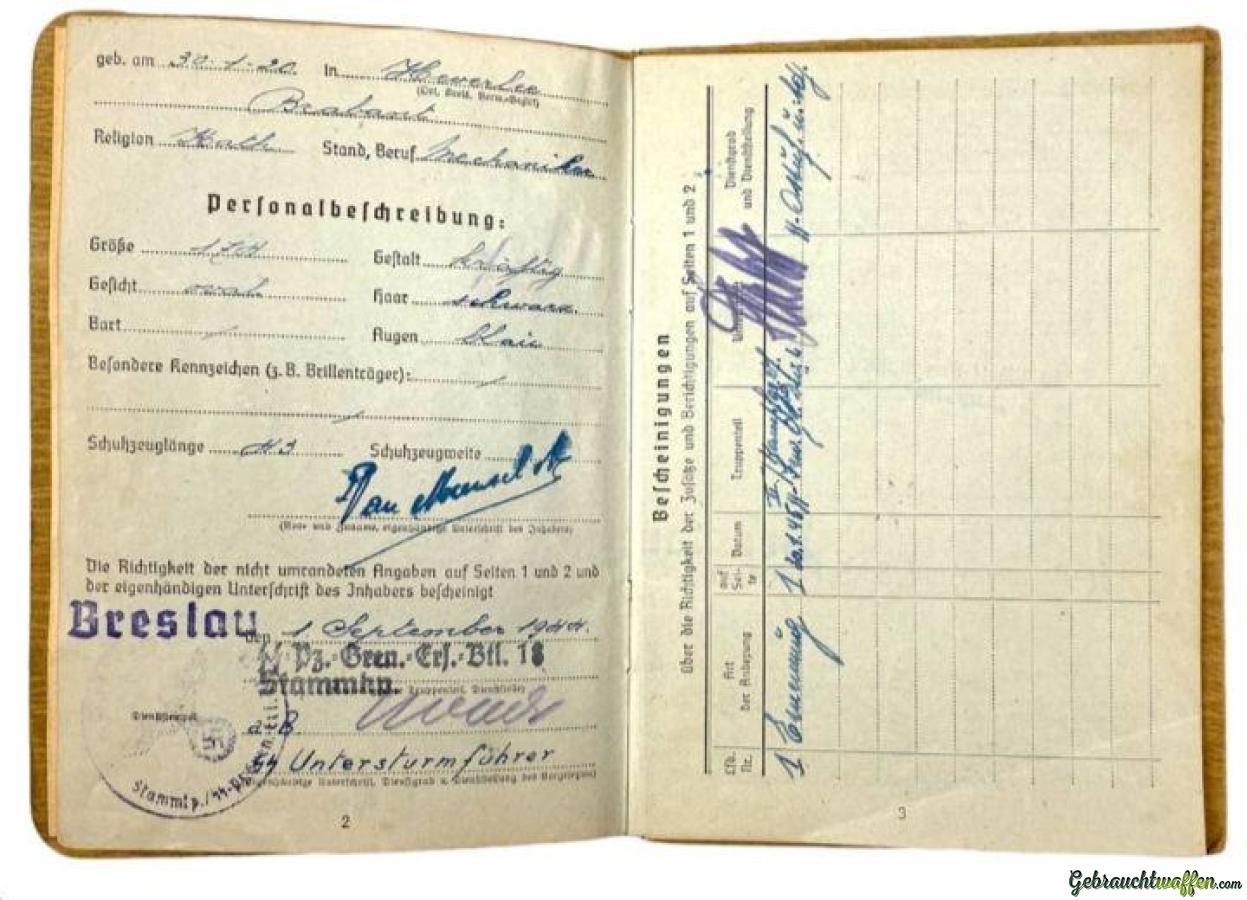 geb. am 30.1.20. In Heverlee
(Ort, Kreis, Verw.-Bezirk)
Brabant
Religion Kath Stand, Beruf Mechaniker
Personalbeschreibung:
Größe 174 Gestalt kräftig
Gesicht oval Haar schwarz.
Bart / Augen blau
Besondere Kennzeichen (z. B. Brillenträger):
Schuhzeuglänge 43 Schuhzeugweite
Van
(Vor- und Zuname, eigenhändige Unterschrift des Inhabers)
Die Richtigkeit der nicht umrandeten Angaben auf Seiten 1 und 2 und
der eigenhändigen Unterschrift des Inhabers bescheinigt
Breslau den 1 September 1944.
SS Pz.-Gren.-Ers.-Btl. 18
Stammkp.
(Truppenteil, Dienststelle)
Dienststempel
a.B
SS Untersturmführer
(Eigenhändige Unterschrift, Dienstgrad u. Dienststellung des Vorgesetzten)
Stammkp./SS-
2
Bescheinigungen
über die Richtigkeit der Zusätze und Berichtigungen auf Seiten 1 und 2
Lfd. Nr. Art der Änderung auf Seite Datum Truppenteil Dienstgrad und Dienststellung
1 Ernennung 1
3
Gebrauchtwaffen.com